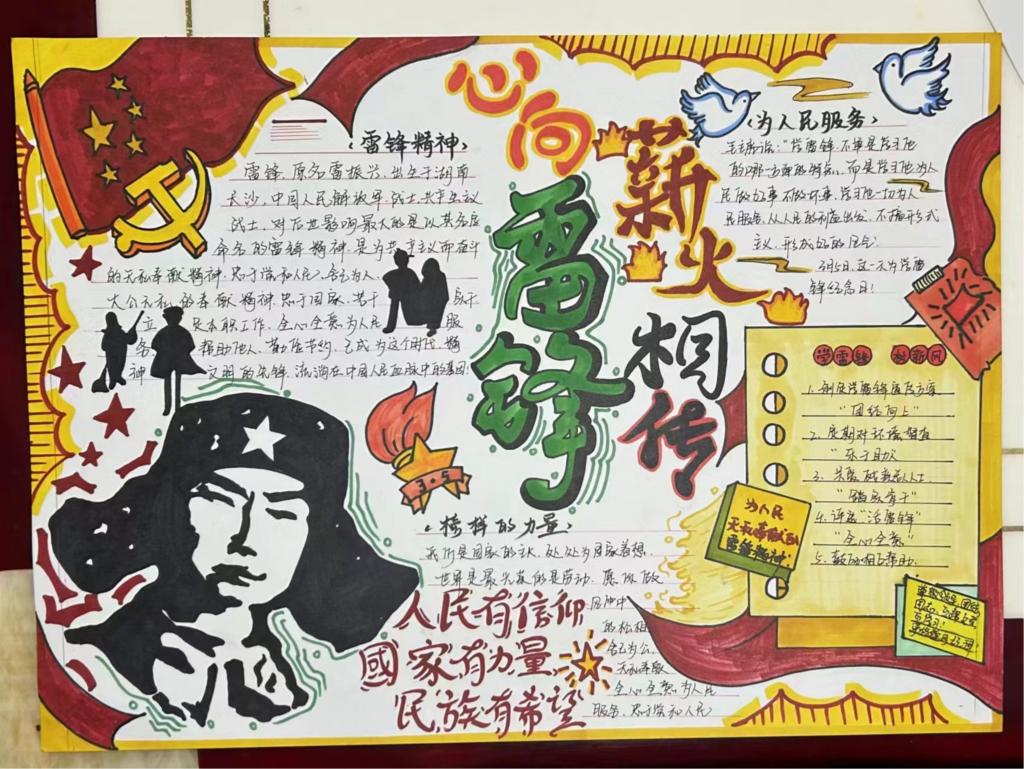 心向
雷锋
薪火
相传
〈雷锋精神〉
雷锋，原名雷振兴，出生于湖南
长沙，中国人民解放军战士，共产主义
战士，对后世影响最大的是以其名座
命名的雷锋精神，是为共产主义而奋斗
的无私奉献精神，忠于党和人民、舍己为人、
大公无私的奉献精神，忠于国家、
立 足本职工作、全心全意为人民 服
务 帮助他人、勤俭节约，已成为这个时代 精
神 文明的先锋，流淌在中国人民血脉中的基因！
3·5
〈为人民服务〉
毛主席说：“学雷锋不单是学习他
的哪一方面的特别，而是学习他为人
民做好事不做坏事，学习他一切为人
民服务，从人民的利益出发，不搞形式
主义，形成好的风气！
3月5日，这一天为学雷
锋纪念日！
学雷锋 树新风
1、制定学雷锋
“团结向上”
2、定期对环境
“乐于助人”
3、关爱
4、评选“活雷锋”
“全心全意”
5、鼓励相互帮助.
为人民
无私奉献的
雷锋精神.
〈榜样的力量〉
我们是国家的主人，处处为国家着想.
世界是最光荣的是劳动. 愿做
的松柏
舍己为公、
无私奉献
全心全意为人民
服务、忠于党和人民
人民有信仰
國家有力量
民族有希望